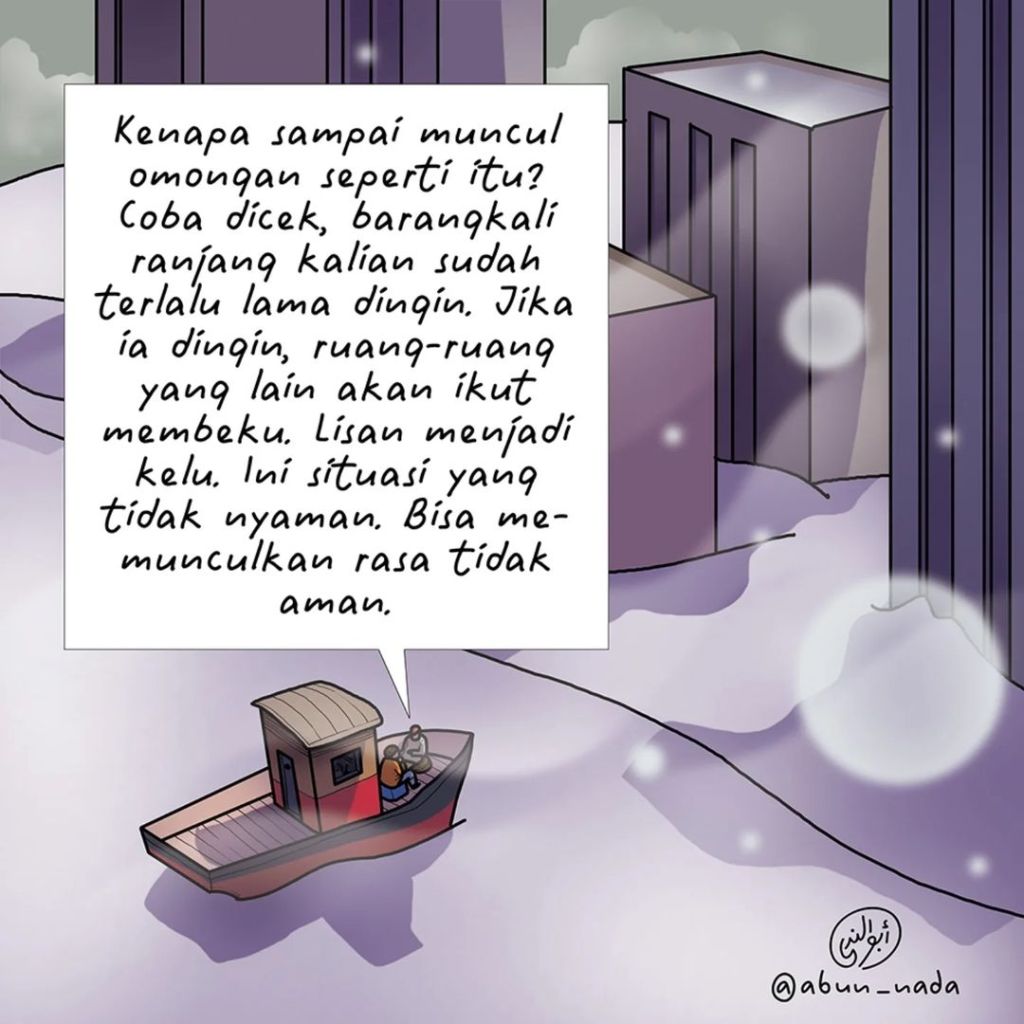 Kenapa sampai muncul
omongan seperti itu?
Coba dicek, barangkali
ranjang kalian sudah
terlalu lama dingin. Jika
ia dingin, ruang-ruang
yang lain akan ikut
membeku. Lisan menjadi
kelu. Ini situasi yang
tidak nyaman. Bisa me-
munculkan rasa tidak
aman.
أبو الندى
@abun_nada